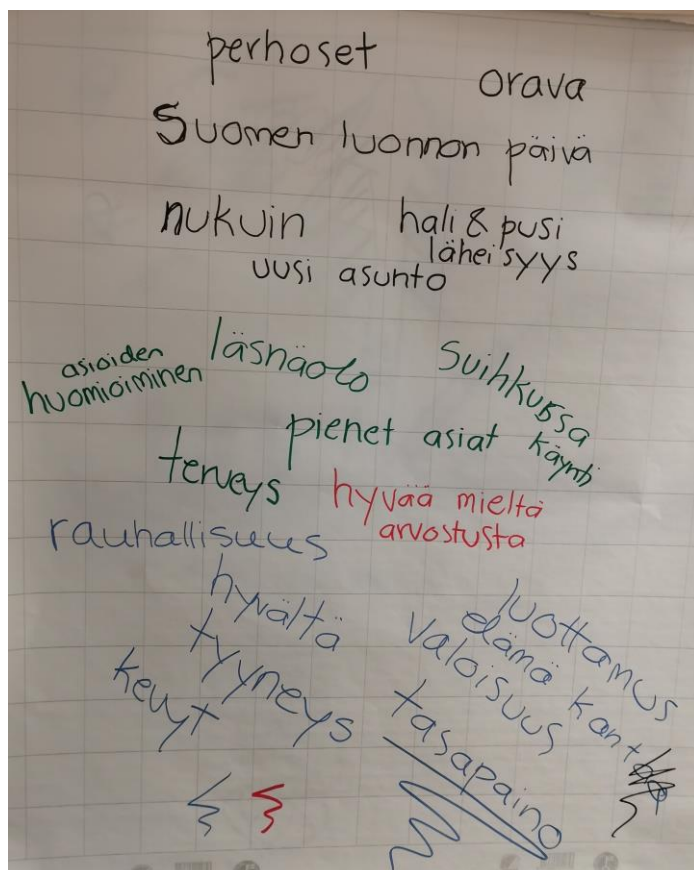 perhoset
orava
Suomen luonnon päivä
nukuin
hali & pusi
läheisyys
uusi asunto
asioiden
huomioiminen
läsnäolo
suihkussa
käynti
pienet asiat
terveys
hyvää mieltä
arvostusta
rauhallisuus
hyvältä
tyyneys
kevyt
luottamus
elämä kantaa
valoisuus
tasapaino